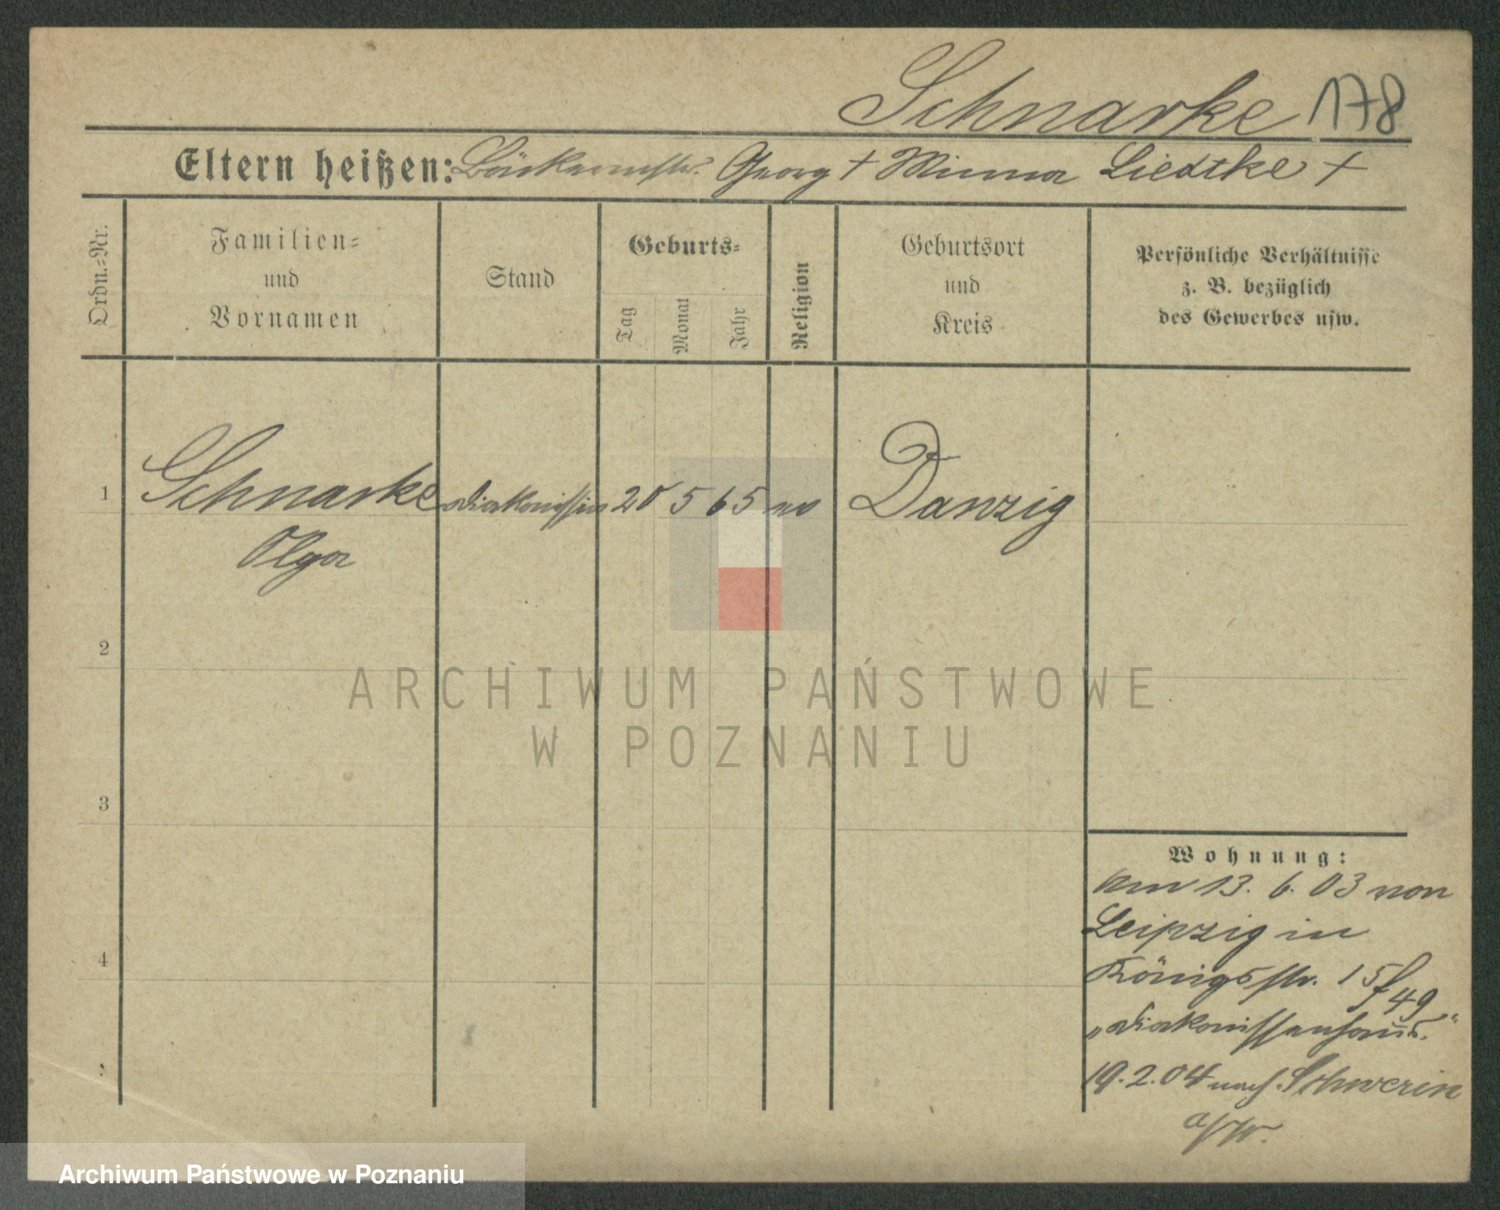 Schnarke 178
Eltern heißen: Bäckermstr. Georg † Minna Liedtke †
Ordn.=Nr.
Familien=
und
Vornamen
Stand
Geburts=
Tag
Monat
Jahr
Religion
Geburtsort
und
Kreis
Persönliche Verhältnisse
z. B. bezüglich
des Gewerbes usw.
1 Schnarke Diakonissin 20 5 65 ev Danzig
Olga
2
3
4
Wohnung:
Am 13. 6. 03 von
Leipzig in
Königsstr. 15/49
„Diakonissenhaus."
19. 2. 04 nach Schwerin
a/W.
ARCHIWUM PAŃSTWOWE
W POZNANIU
Archiwum Państwowe w Poznaniu